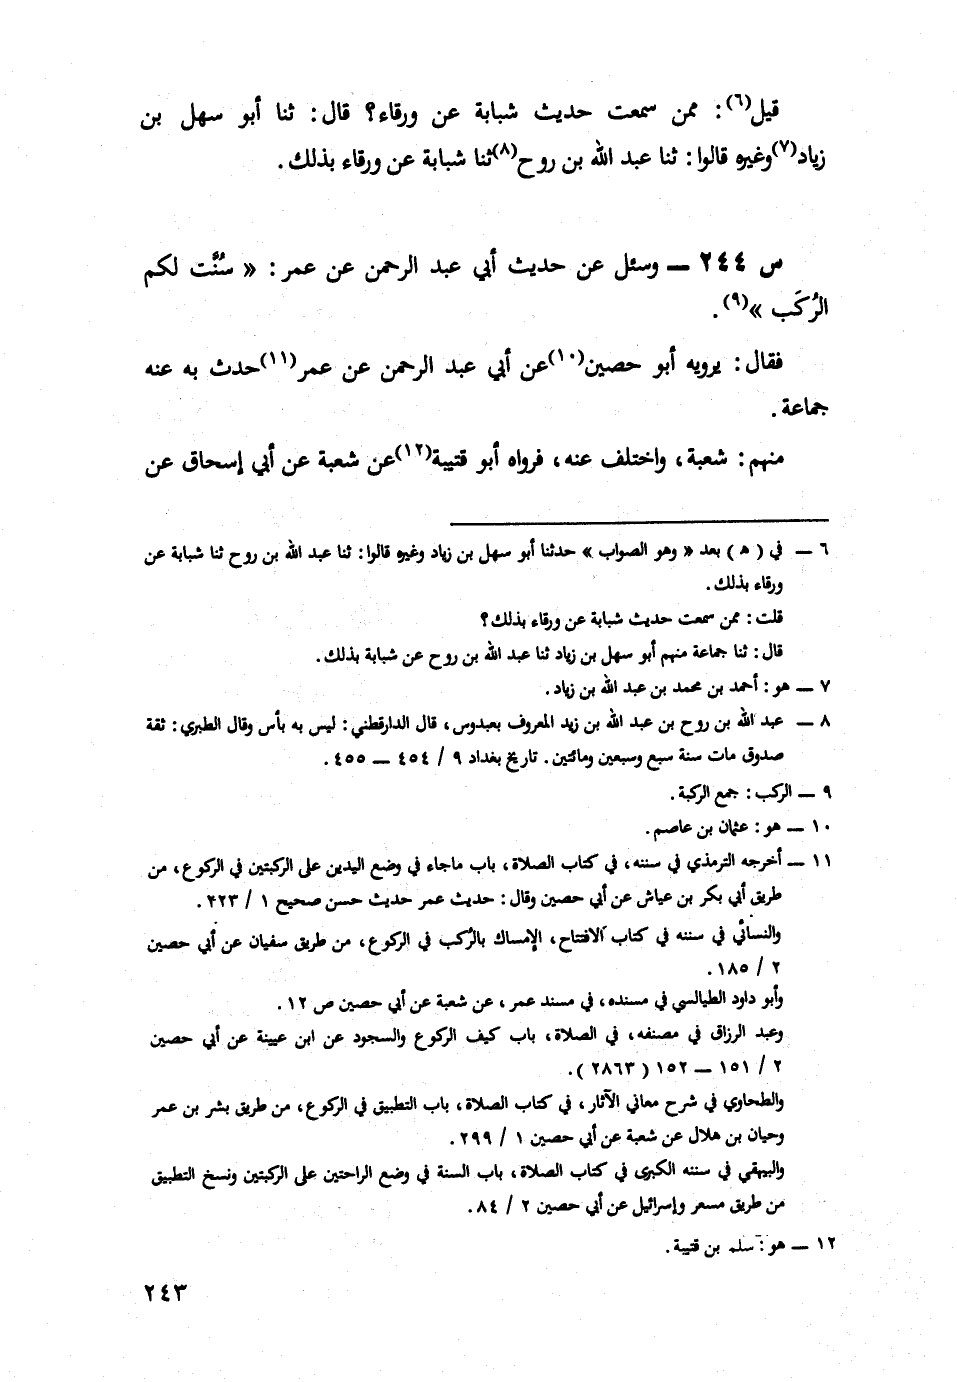 قيل(٦): ممن سمعت حديث شبابة عن ورقاء؟ قال: ثنا أبو سهل بن
زياد(٧)وغيره قالوا: ثنا عبد الله بن روح(٨)ثنا شبابة عن ورقاء بذلك.
س ٢٤٤ ــ وسئل عن حديث أبي عبد الرحمن عن عمر: « سُنَّت لكم
الرُكَب »(٩).
فقال: يرويه أبو حصين(١٠)عن أبي عبد الرحمن عن عمر(١١)حدث به عنه
جماعة.
منهم: شعبة، واختلف عنه، فرواه أبو قتيبة(١٢)عن شعبة عن أبي إسحاق عن
٦ ــ في ( هـ ) بعد « وهو الصواب » حدثنا أبو سهل بن زياد وغيره قالوا: ثنا عبد الله بن روح ثنا شبابة عن
ورقاء بذلك.
قلت: ممن سمعت حديث شبابة عن ورقاء بذلك؟
قال: ثنا جماعة منهم أبو سهل بن زياد ثنا عبد الله بن روح عن شبابة بذلك.
٧ ــ هو: أحمد بن محمد بن عبد الله بن زياد.
٨ ــ عبد الله بن روح بن عبد الله بن زيد المعروف بعبدوس، قال الدارقطني: ليس به بأس وقال الطبري: ثقة
صدوق مات سنة سبع وسبعين ومائتين. تاريخ بغداد ٩ / ٤٥٤ ــ ٤٥٥.
٩ ــ الركب: جمع الركبة.
١٠ ــ هو: عثمان بن عاصم.
١١ ــ أخرجه الترمذي في سننه، في كتاب الصلاة، باب ماجاء في وضع اليدين على الركبتين في الركوع، من
طريق أبي بكر بن عياش عن أبي حصين وقال: حديث عمر حديث حسن صحيح ١ / ٢٢٣.
والنسائي في سننه في كتاب الافتتاح، الإمساك بالرُكب في الركوع، من طريق سفيان عن أبي حصين
٢ / ١٨٥.
وأبو داود الطيالسي في مسنده، في مسند عمر، عن شعبة عن أبي حصين ص ١٢.
وعبد الرزاق في مصنفه، في الصلاة، باب كيف الركوع والسجود عن ابن عيينة عن أبي حصين
٢ / ١٥١ ــ ١٥٢ ( ٢٨٦٣ ).
والطحاوي في شرح معاني الآثار، في كتاب الصلاة، باب التطبيق في الركوع، من طريق بشر بن عمر
وحيان بن هلال عن شعبة عن أبي حصين ١ / ٢٩٩.
والبيهقي في سننه الكبرى في كتاب الصلاة، باب السنة في وضع الراحتين على الركبتين ونسخ التطبيق
من طريق مسعر وإسرائيل عن أبي حصين ٢ / ٨٤.
١٢ ــ هو: سلم بن قتيبة.
٢٤٣